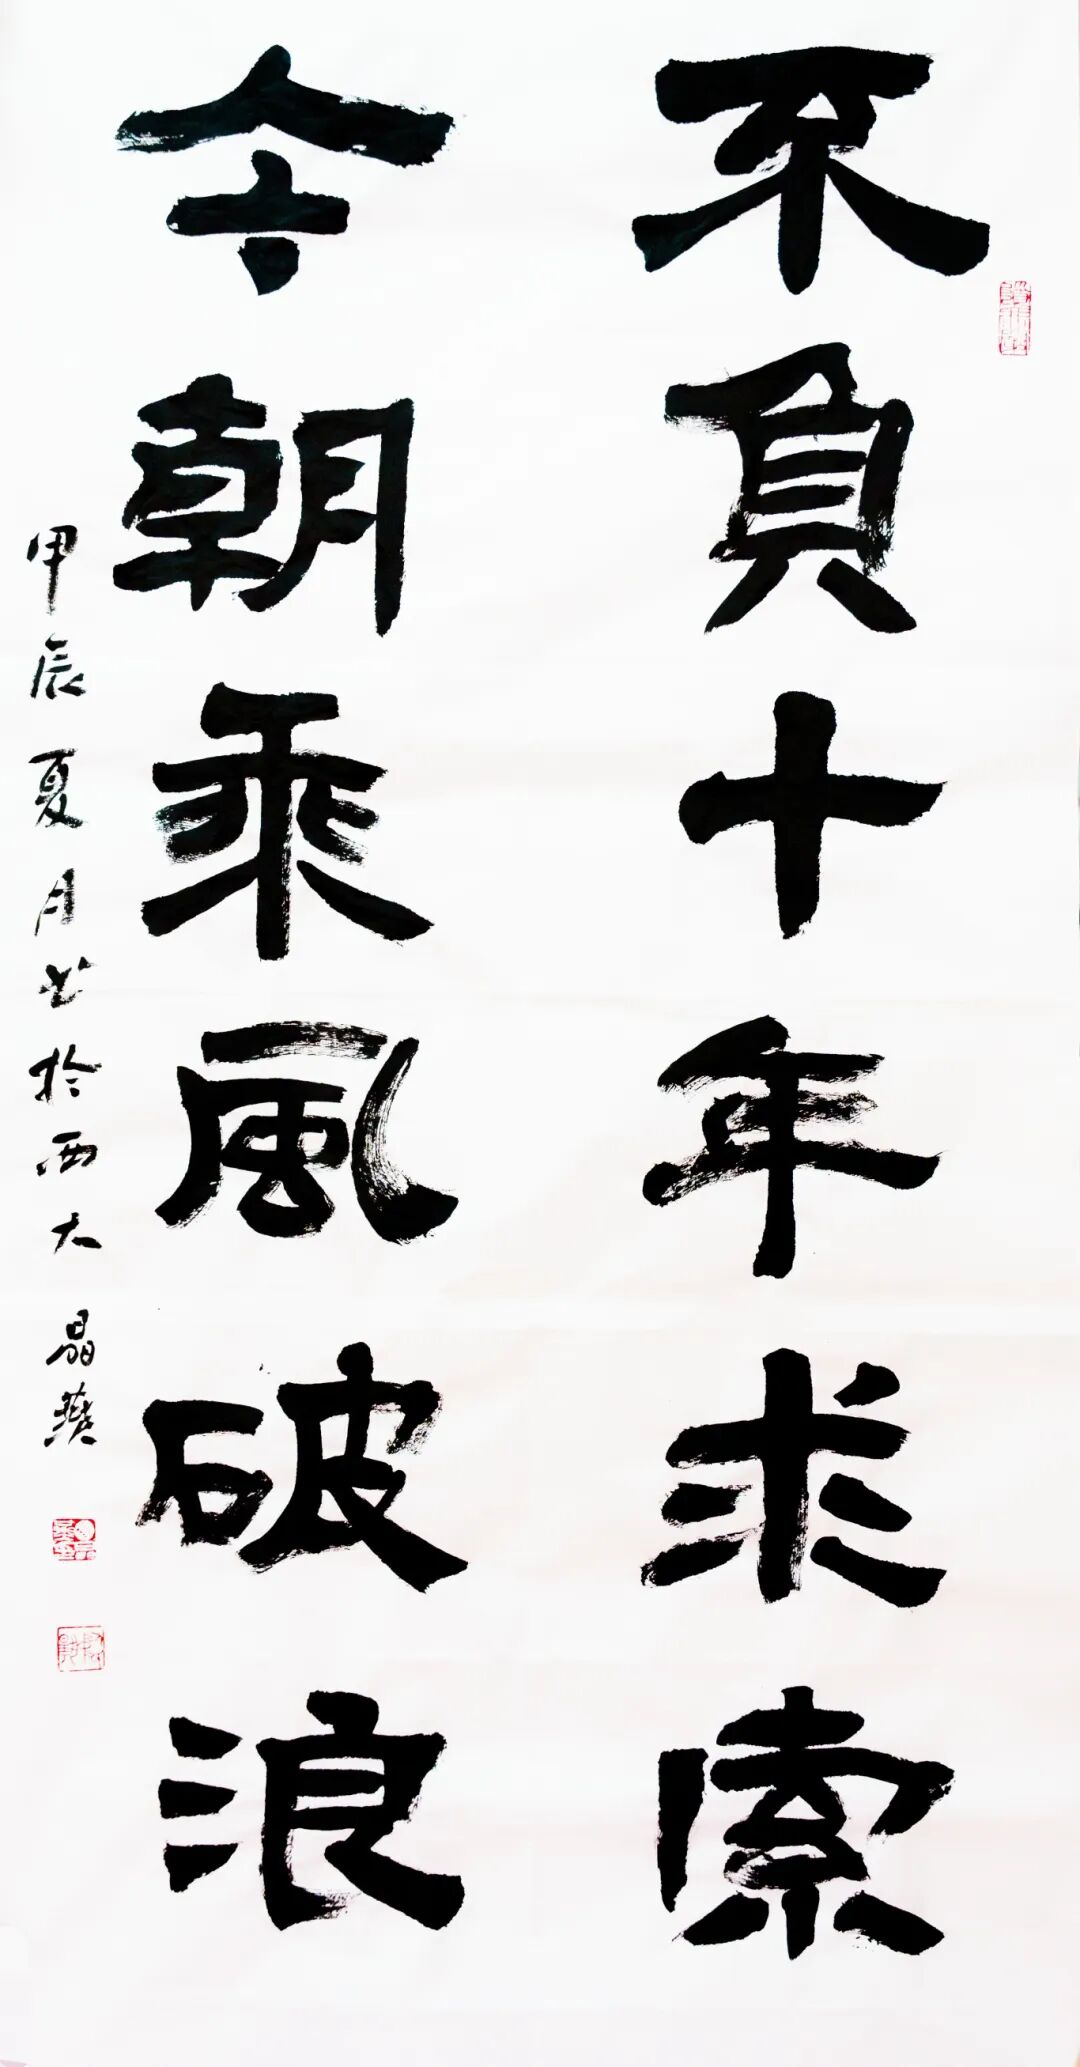 不負十年求索
今朝乘風破浪
甲辰夏月书於西大 晶燕